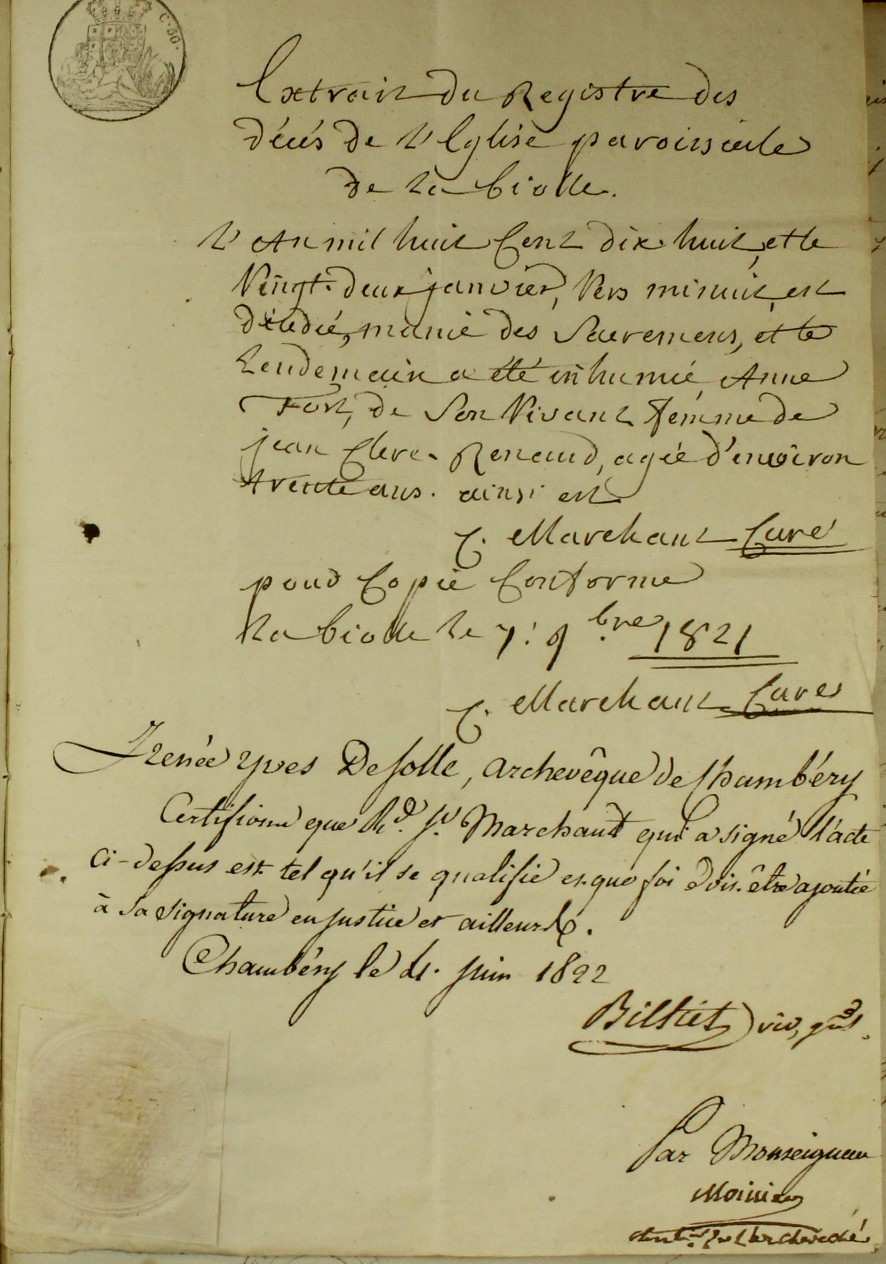 C. 50.
Extrait du Registre des
décés de l'Eglise paroissiale
de la Biolle.
l'an mil huit Cent dix huit, et le
Vingt-deux janvier, Vers minuit, est
décédée, munie des Sacremens, et le
Lendemain a été inhumée, Anne
Fort, de Son Vivant femme de
jean Clerc-Renaud, agée d'environ
trente ans. ainsi est
C. Marchant Curé
pour Copie Conforme
La Biolle le 7. 9bre 1821
C. Marchant Curé
Irenée Yves Desolle, Archevêque de Chambéry
Certifions que Rd. Sr. Marchant qui a signé l'acte
ci-dessus est tel qu'il se qualifie et que foi doit être ajoutée
à sa signature en justice et ailleurs.
Chambéry le Juin 1822
Billiet vic, gal.
Par Monseigneur
de l'archevêché